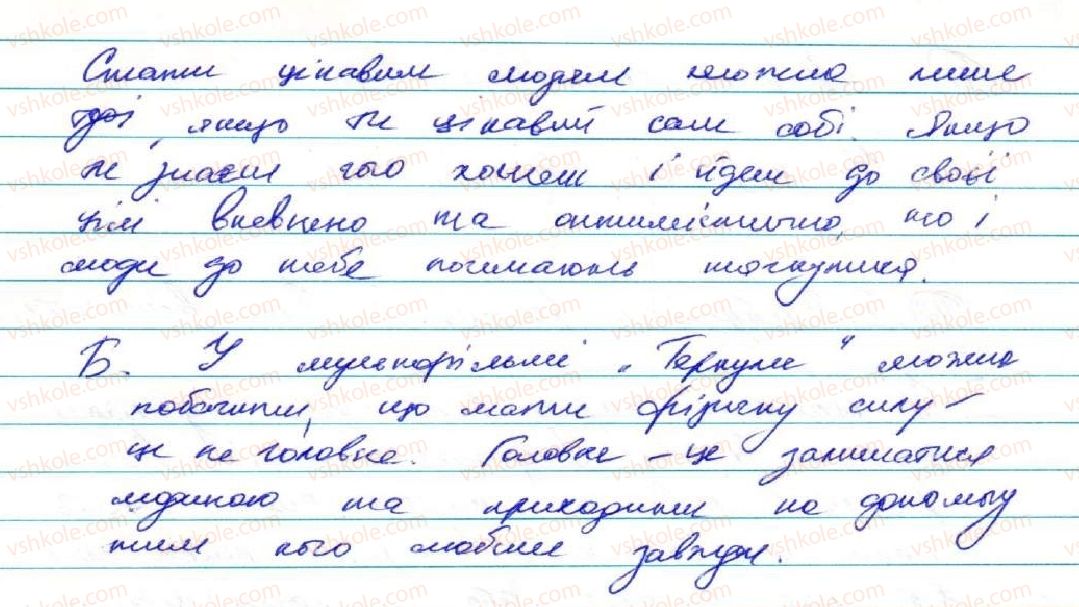 Стати цікавим людям можна лише
тоді, якщо ти цікавий сам собі. Якщо
ти знаєш чого хочеш і йдеш до своєї
цілі впевнено та оптимістично, то і
люди до тебе починають тягнутися.
Б. У мультфільмі „Геркулес" можна
побачити, що мати фізичну силу –
це не головне. Головне – це залишатися
людиною та приходити на допомогу
тим кого любиш завжди.
vshkole.com